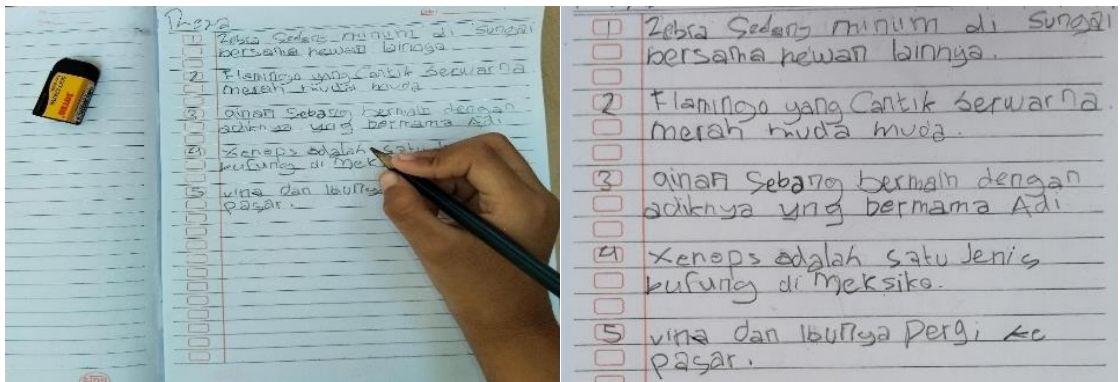 Theya
1 Zebra Sedang minum di Sungai
bersama hewan lainnya
2 Flamingo yang Cantik berwarna
merah muda muda
3 ainan Sebang bermain dengan
adiknya yng bermama Adi
4 Xenops adalah satu
bufung di Mek
5 vina dan Ibunya
pasar.
1 Zebra Sedang minum di Sungai
bersama hewan lainnya.
2 Flamingo yang Cantik berwarna
merah muda muda.
3 ainan Sebang bermain dengan
adiknya yng bermama Adi
4 Xenops adalah satu Jenis
bufung di Meksiko.
5 vina dan Ibunya Pergi ke
pasar.